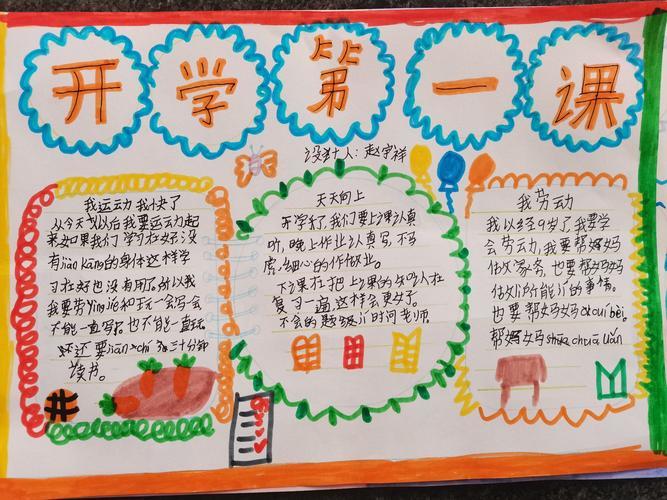 开学第一课
设计人：赵宇祥
我运动 我快了
从今天以后我要运动起
来如果我们学习在好没
有jiàn kāng的身体这样学
习在好也没有用了所以我
我要劳yìng jié和王元一会写会
不能一直写，也不能一直玩
还要jiān chí 三十分钟
读书。
天天向上
开学了，我们要上课认真
听，晚上作业认真写，不马
虎，细心的作做业。
下课在把上课的知识在
复习一遍，这样会更好了
不会的题 时间老师
我劳动
我以经9岁了，我要学
会劳动，我要帮妈妈
做家务，也要帮妈妈
做力所能及的事情。
也要帮妈妈
帮妈妈